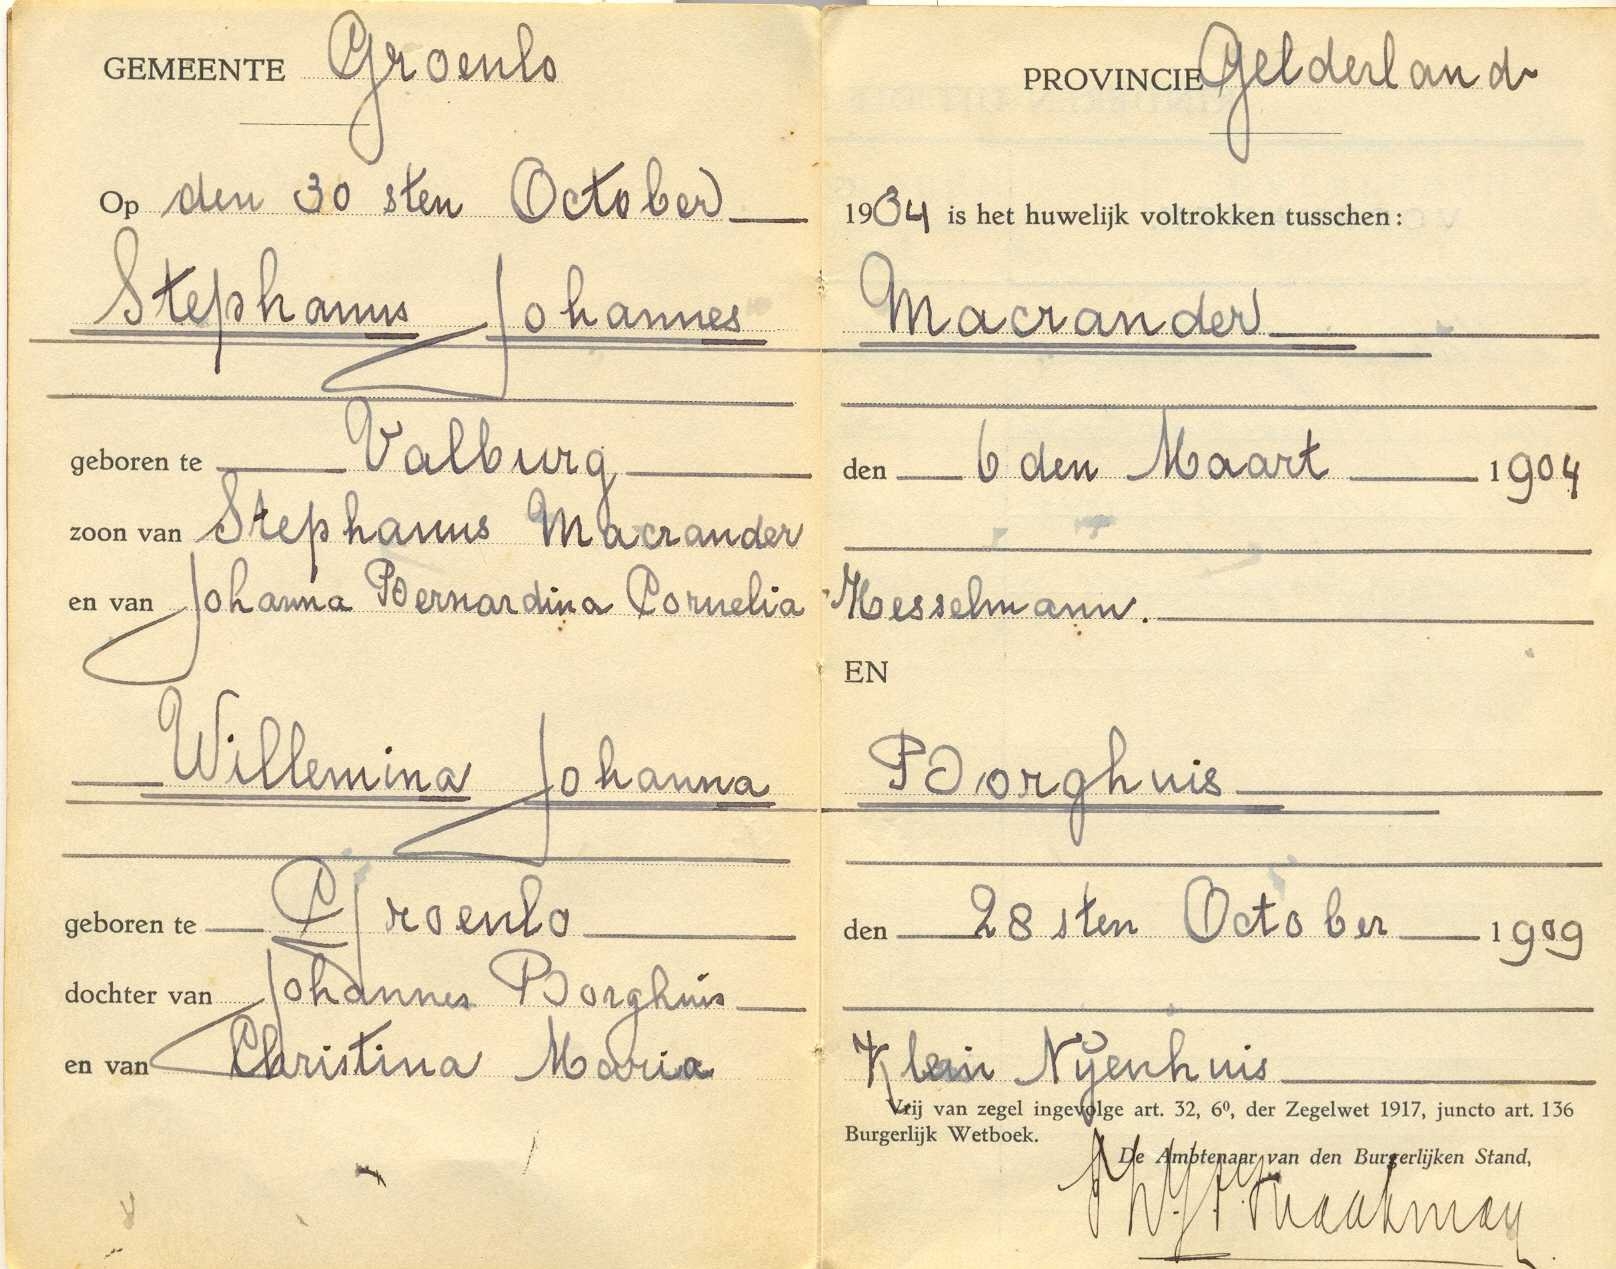 GEMEENTE Groenlo PROVINCIE Gelderland
Op den 30 sten October 1934 is het huwelijk voltrokken tusschen:
Stephanus Johannes Macrander
geboren te Valburg den 6 den Maart 1904
zoon van Stephanus Macrander
en van Johanna Bernardina Cornelia Hesselmann.
EN
Willemina Johanna Borghuis
geboren te Groenlo den 28 sten October 1909
dochter van Johannes Borghuis
en van Christina Maria Klein Nijenhuis
Vrij van zegel ingevolge art. 32, 6⁰, der Zegelwet 1917, juncto art. 136
Burgerlijk Wetboek.
De Ambtenaar van den Burgerlijken Stand,